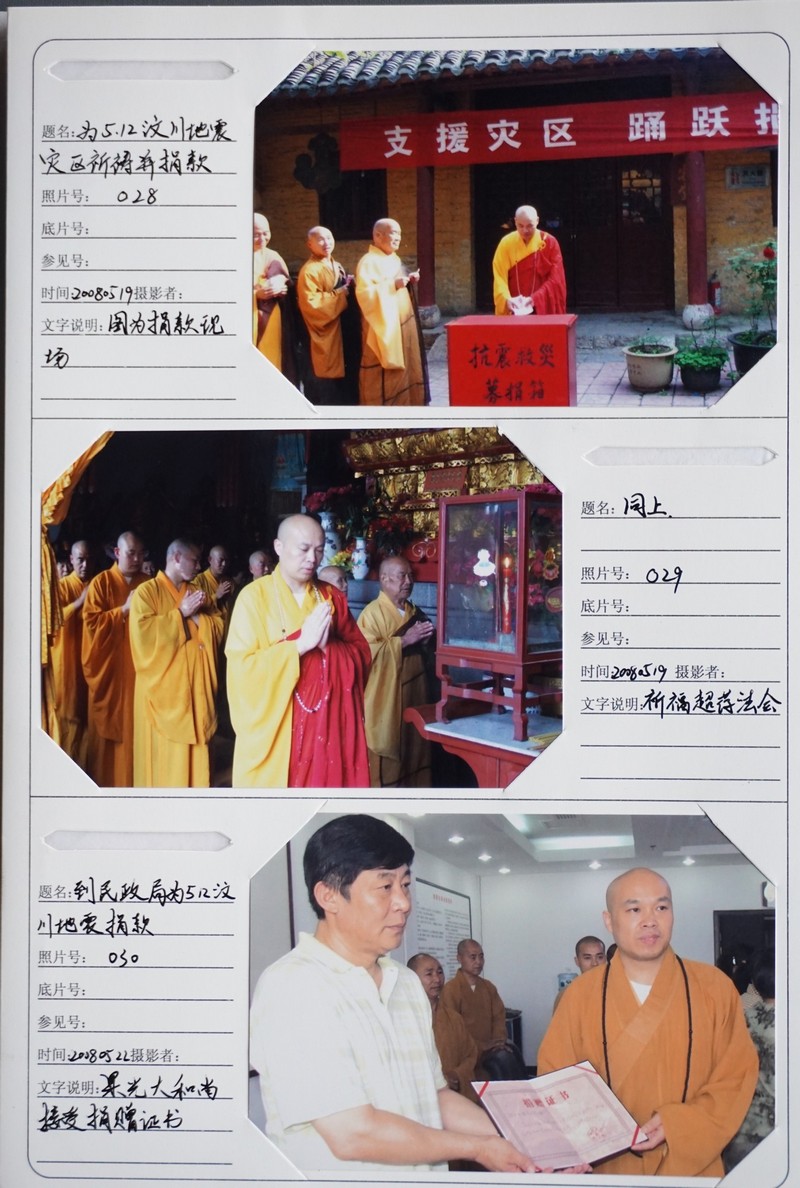 题名:为5.12汶川地震
灾区祈祷并捐款
照片号: 028
底片号:
参见号:
时间:20080519摄影者:
文字说明:图为捐款现
场
支援灾区 踊跃捐
抗震救災
募捐箱
题名: 同上.
照片号: 029
底片号:
参见号:
时间20080519 摄影者:
文字说明:祈福超荐法会
题名:到民政局为512汶
川地震捐款
照片号: 030
底片号:
参见号:
时间:20080522摄影者:
文字说明:果光大和尚
接受捐赠证书
捐赠证书